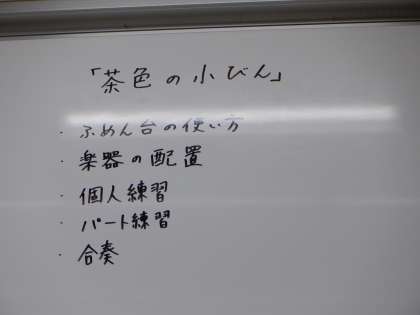 「茶色の小びん」
・ふめん台の使い方
・楽器の配置
・個人練習
・パート練習
・合奏